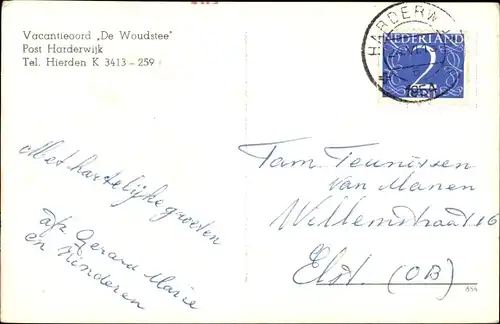 Vacantieoord „De Woudstee"
Post Harderwijk
Tel. Hierden K 3413 – 259
HARDERWIJK
1954
NEDERLAND
2
CENT
Met hartelijke groeten
afz Gerard Marie
en Kinderen
Fam. Teunissen
van Manen
Willemstraat 16
Elst. (OB)